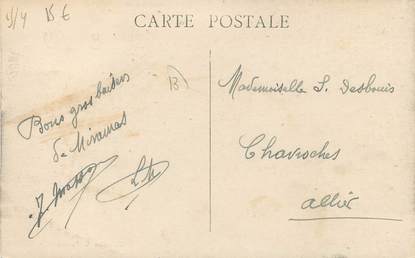 5/4 15 €
CARTE POSTALE
B
Bons gros baisers
de Miramas
Mademoiselle S. Desbouis
Chavroches
Allier